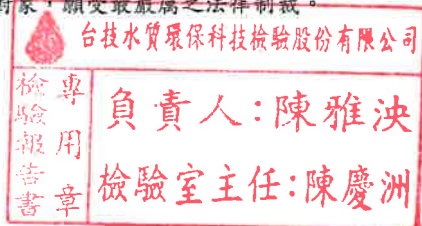 對象，願受最嚴厲之法律制裁。
台技水質環保科技檢驗股份有限公司
檢驗報告書
專用章
負責人：陳雅泱
檢驗室主任：陳慶洲